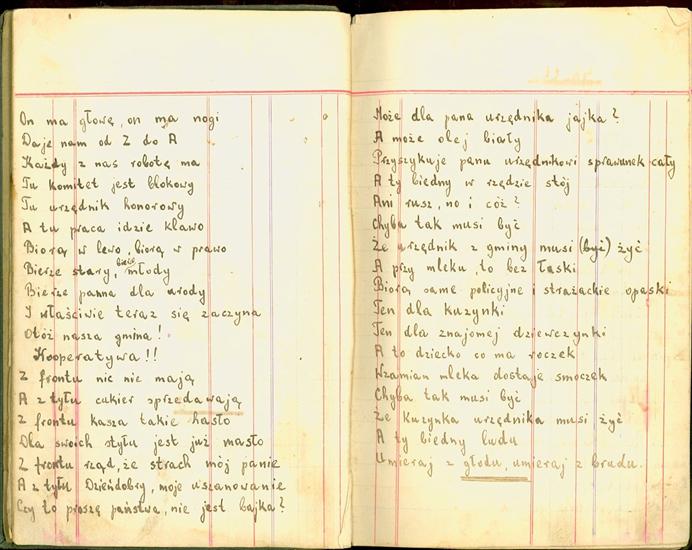 On ma głowę, on ma nogi
Daje nam od Z do A
Każdy z nas robotę ma
Tu komitet jest blokowy
Tu urzędnik honorowy
A tu praca idzie klawo
Biorą w lewo, biorą w prawo
Bierze stary, bierze młody
Bierze panna dla urody
I właściwie teraz się zaczyna
Otóż nasza gmina!
Kooperatywa!!
Z frontu nic nie mają
A z tyłu cukier sprzedawają
Z frontu kasza takie hasło
Dla swoich styłu jest już masło
Z frontu rząd, że strach mój panie
A z tyłu Dzieńdobry, moje uszanowanie
Czy to proszę państwa, nie jest bajka?
Może dla pana urzędnika jajka?
A może olej biały
Przyszykuje panu urzędnikowi sprawunek cały
A ty biedny w rzędzie stój
Ani rusz, no i cóż?
Chyba tak musi być
Że urzędnik z gminy musi (być) żyć
A przy mleku, to bez łaski
Biorą same policyjne i strażackie opaski
Ten dla kuzynki
Ten dla znajomej dziewczynki
A to dziecko co ma roczek
Wzamian mleka dostaje smoczek
Chyba tak musi być
Że kuzynka urzędnika musi żyć
A ty biedny ludu
Umieraj z głodu, umieraj z brudu.